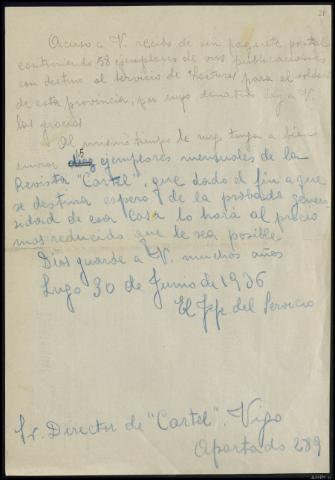 Acuso a V. recibo de un paquete postal
conteniendo 58 ejemplares de sus publicaciones
con destino al servicio de Lecturas para el soldado
de esta provincia, por cuyo donativo doy a V.
las gracias
Al mismo tiempo le ruego tenga a bien
enviar 15 ejemplares mensuales de la
Revista "Cartel", que dado el fin a que
se destina espero de la probada genero
sidad de esa Casa lo hará al precio
mas reducido que le sea posible
Dios guarde a V. muchos años
Lugo 30 de Junio de 1936
El Jefe del Servicio
Sr. Director de "Cartel". Vigo
Apartado 289